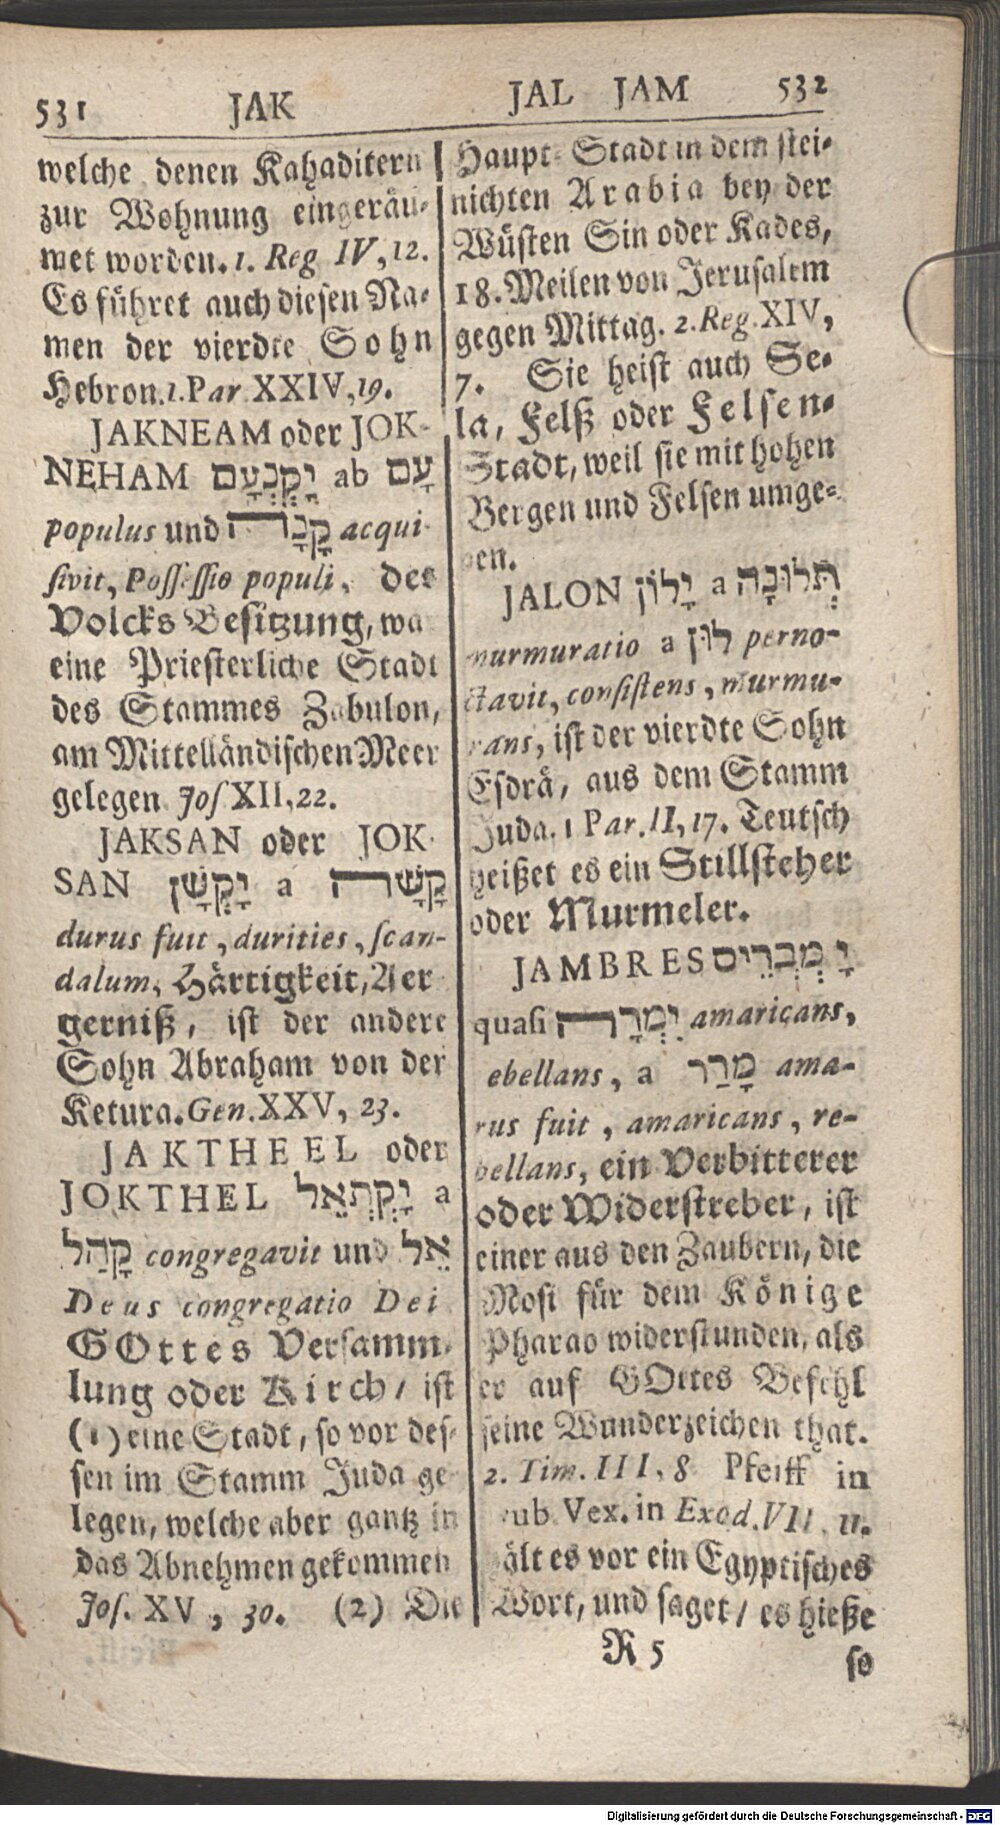 531 JAK
welche denen Kahaditern
zur Wohnung eingeräu-
met worden. 1. Reg IV, 12.
Es führet auch diesen Na-
men der vierdte Sohn
Hebron. 1. Par XXIV, 19.
JAKNEAM oder JOK-
NEHAM יָקְנְעָם ab עָם
populus und קָנָה acqui-
sivit, Possessio populi, des
Volcks Besitzung, wa
eine Priesterliche Stadt
des Stammes Zabulon,
am Mittelländischen Meer
gelegen Jos XII, 22.
JAKSAN oder JOK-
SAN יָקְשָׁן a קָשָׁה
durus fuit, durities, scan-
dalum, Härtigkeit, Aer
gerniß, ist der andere
Sohn Abraham von der
Ketura. Gen. XXV, 23.
JAKTHEEL oder
JOKTHEL יָקְתְאֵל a
קָהַל congregavit und אֵל
Deus congregatio Dei
GOttes Versamm-
lung oder Kirch / ist
(1) eine Stadt, so vor des-
sen im Stamm Juda ge
legen, welche aber gantz in
das Abnehmen gekommen
Jos. XV, 30. (2) Die
JAL JAM 532
Haupt-Stadt in dem stei-
nichten Arabia bey der
Wüsten Sin oder Kades,
18. Meilen von Jerusalem
gegen Mittag. 2. Reg. XIV,
7. Sie heist auch Se-
la, Felß oder Felsen-
Stadt, weil sie mit hohen
Bergen und Felsen umge-
ben.
JALON יָלוֹן a תְּלוּנָה
murmuratio a לוּן perno-
ctavit, consistens, murmu-
rans, ist der vierdte Sohn
Esdrä, aus dem Stamm
Juda. 1 Par. II, 17. Teutsch
heißet es ein Stillsteher
oder Murmeler.
JAMBRES יָמְבְרֵיס
quasi יִמְרָה amaricans,
ebellans, a מָרַר ama-
rus fuit, amaricans, re-
bellans, ein Verbitterer
oder Widerstreber, ist
einer aus den Zaubern, die
Mosi für dem Könige
Pharao widerstunden, als
er auf GOttes Befehl
seine Wunderzeichen that.
2. Tim. III, 8 Pfeiff in
ub Vex. in Exod. VII, 11.
ält es vor ein Egyptisches
Wort, und saget / es hieße
R 5
so
Digitalisierung gefördert durch die Deutsche Forschungsgemeinschaft - DFG